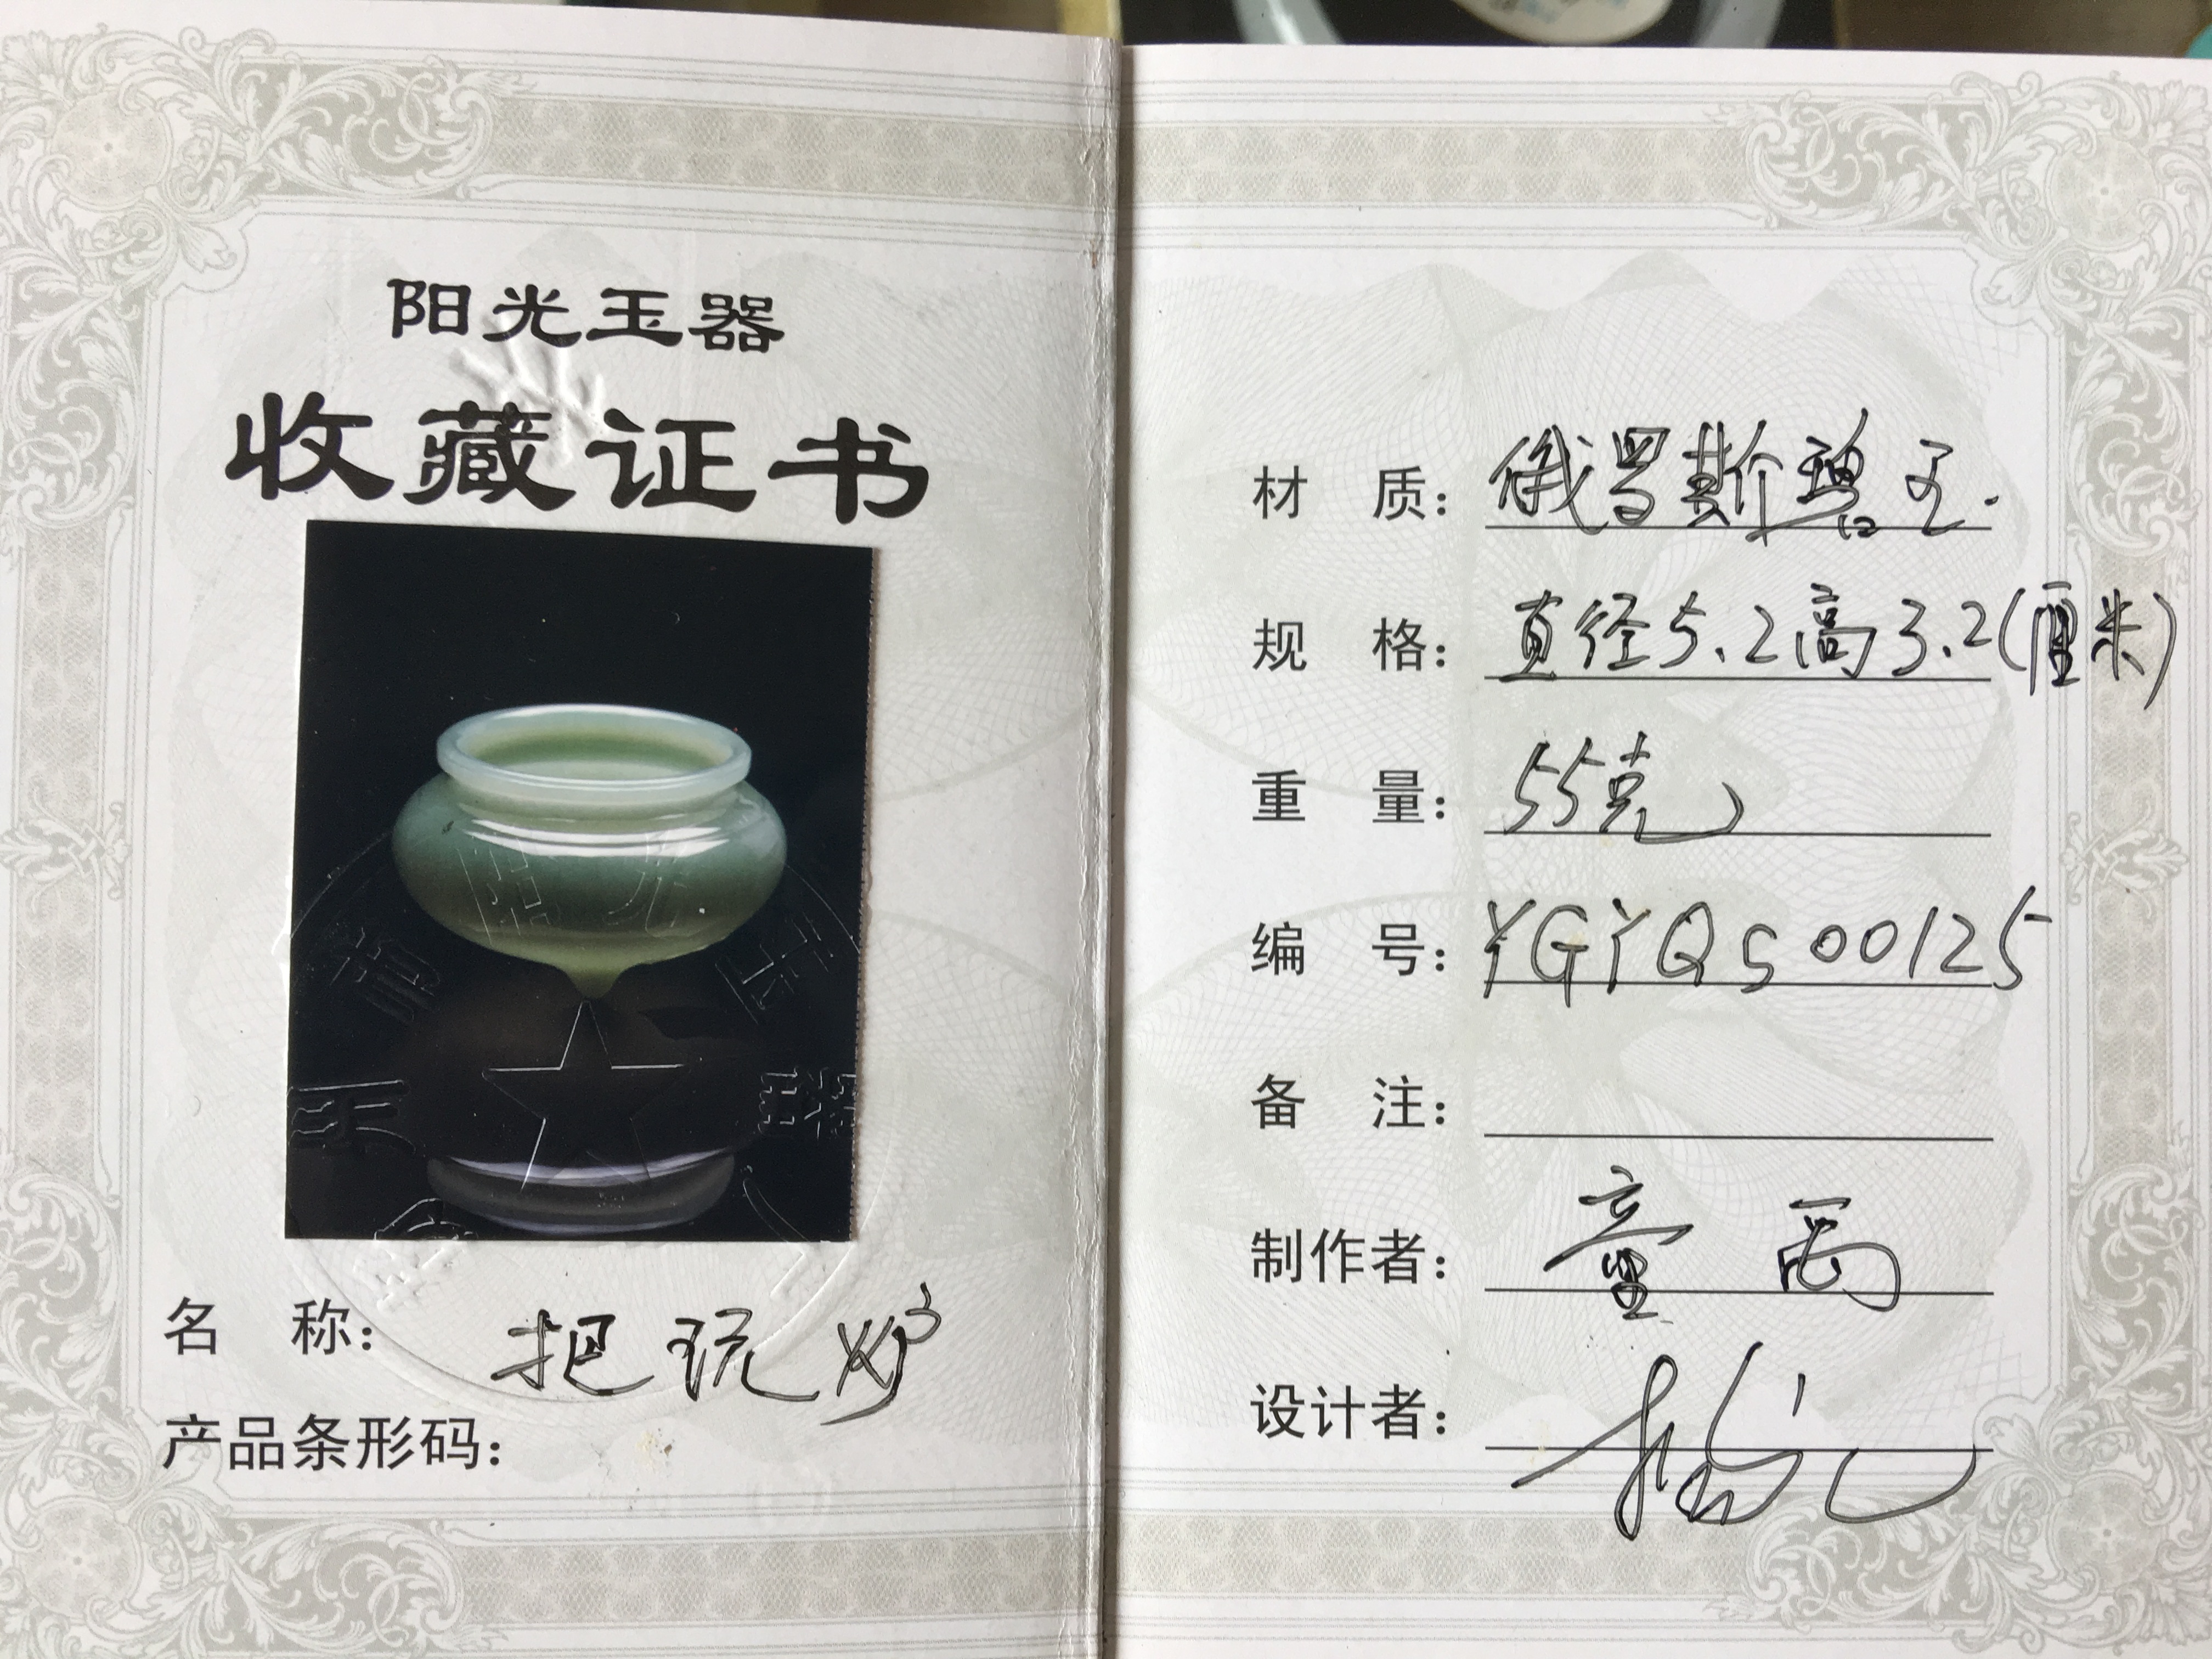 阳光玉器
收藏证书
名 称: 把玩炉
产品条形码:
材 质: 俄罗斯碧玉.
规 格: 直径5.2高3.2(厘米)
重 量: 55克
编 号: YGYQS00125
备 注:
制作者: 童
设计者: